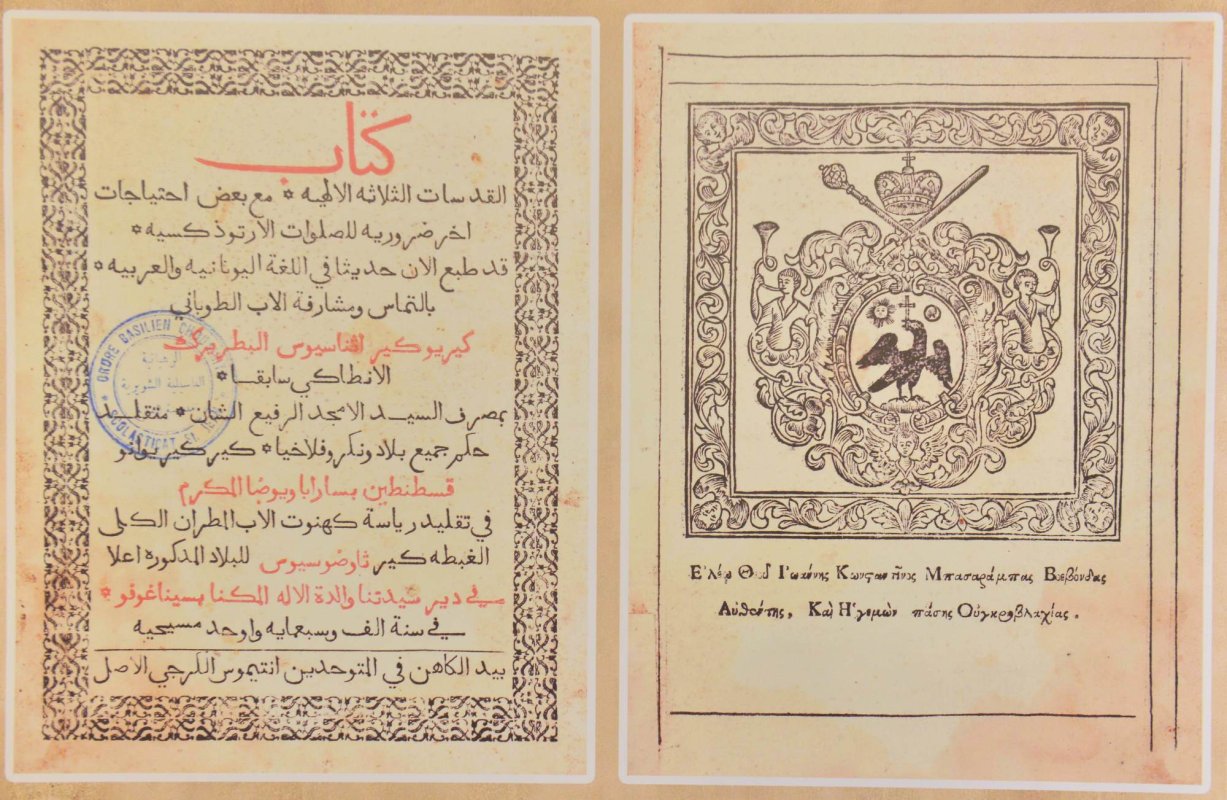 كتاب
القدسات الثلاثه الالهيه * مع بعض احتياجات
اخر ضروريه للصلوات الارتوذكسيه *
قد طبع الان حديثا في اللغة اليونانيه والعربيه *
بالتماس ومشارفة الاب الطوباني
كيريو كير اثناسيوس البطريرك
الانطاكي سابقا *
بمصرف السيد الامجد الرفيع الشان * متقليد
حكم جميع بلاد ونكروفلاخيا * كير كير يوانو
قسطنطين بسارابا ويوضا المكرم
في تقليد رياسة كهنوت الاب المطران الكلى
الغبطه كير ثاوضوسيوس للبلاد المذكوره اعلا
في دير سيدتنا والدة الاله المكنا بسيناغوفو *
في سنة الف وسبعمايه واوحد مسيحيه
بيد الكاهن في المتوحدين انتيموس الكرجي الاصل
ORDRE BASILIEN
الباسيلية الشويرية
SCOLASTICAT ST
Ἐλέῳ Θεοῦ Ἰωάννης Κωνσταντῖνος Μπασαράμπας Βοεβόνδας
Αὐθέντης, Καὶ Ἡγεμὼν πάσης Οὑγκροβλαχίας.